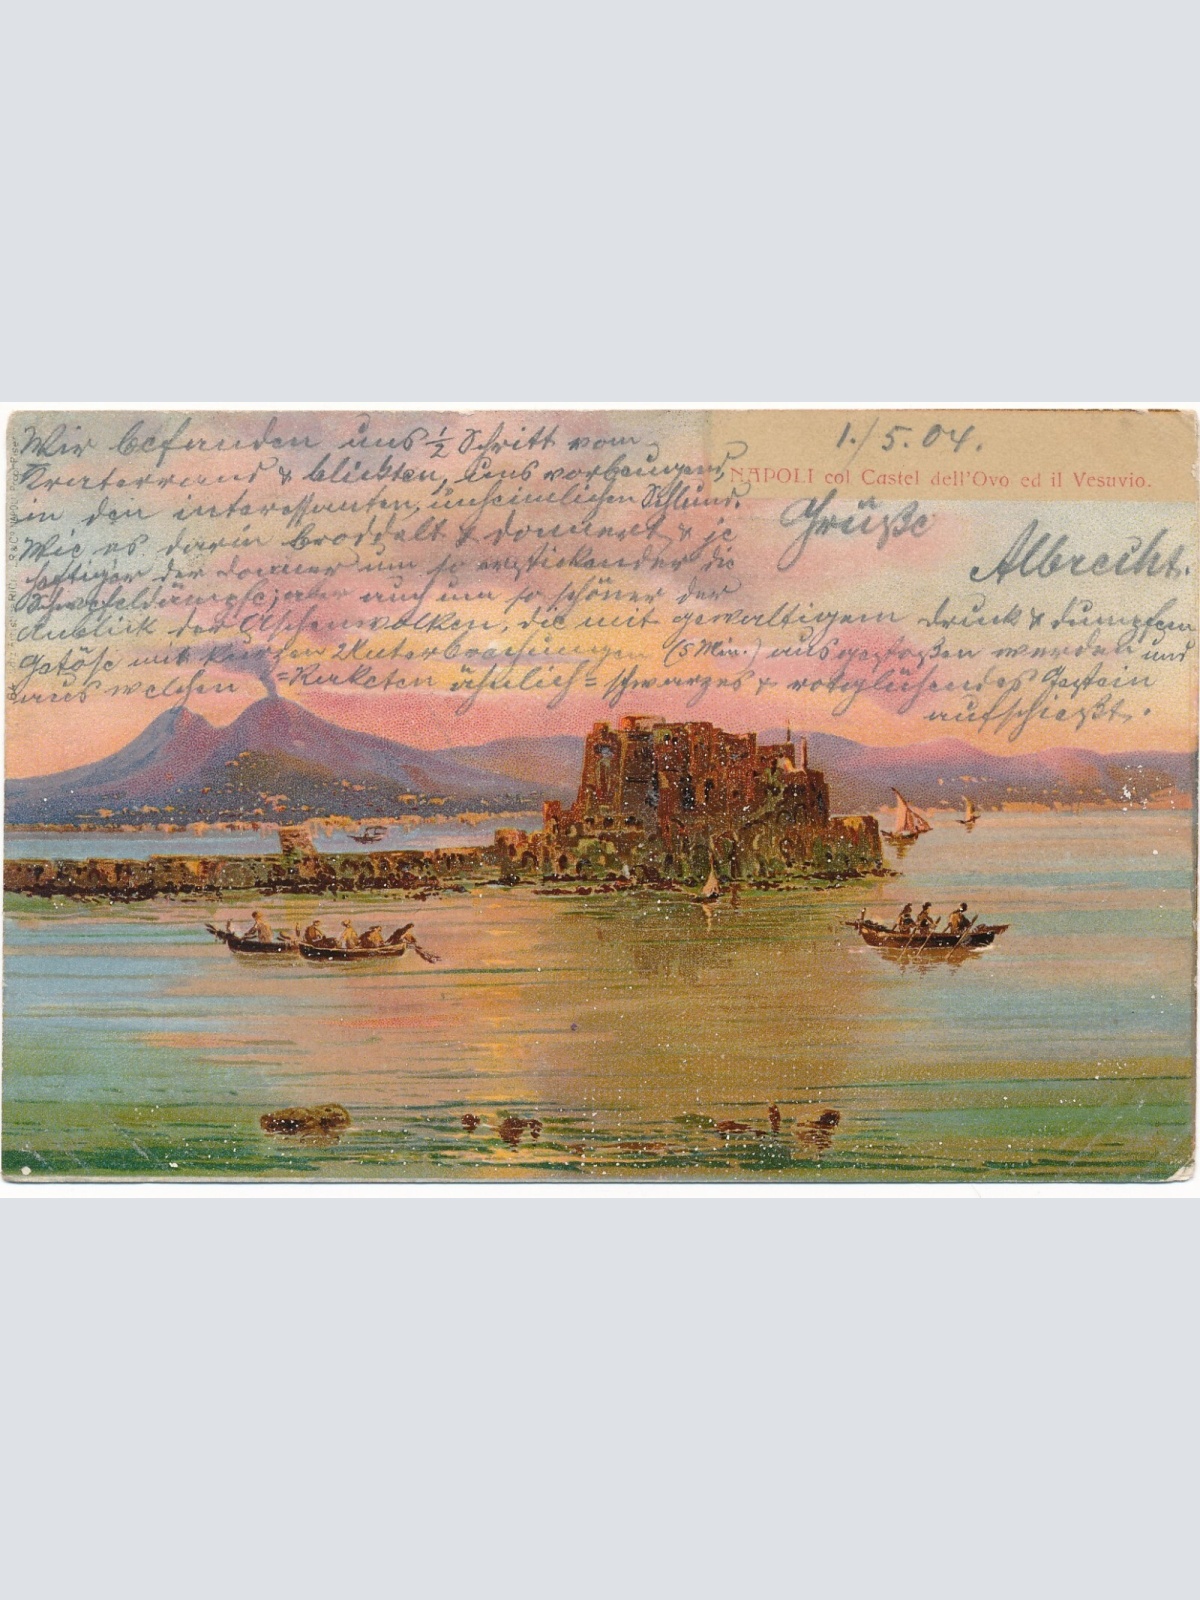 1./5.04.
NAPOLI col Castel dell'Ovo ed il Vesuvio.
Wir befanden uns ½ Schritt vom
Kraterrand & blickten, uns vorbeugend,
in den interessanten, unheimlichen Schlund.
Wie es darin broddelt & donnert, & je
heftiger der Donner um so erstickender die
Schwefeldämpfe; aber auch um so schöner der
Anblick der Aschenwolken, die mit gewaltigem Druck & dumpfem
Getöse mit kurzen Unterbrechungen (5 Min.) ausgestoßen werden und
aus welchen =Raketen ähnlich= schwarzes & rotglühendes Gestein
aufschießt.
Grüße
Albrecht.